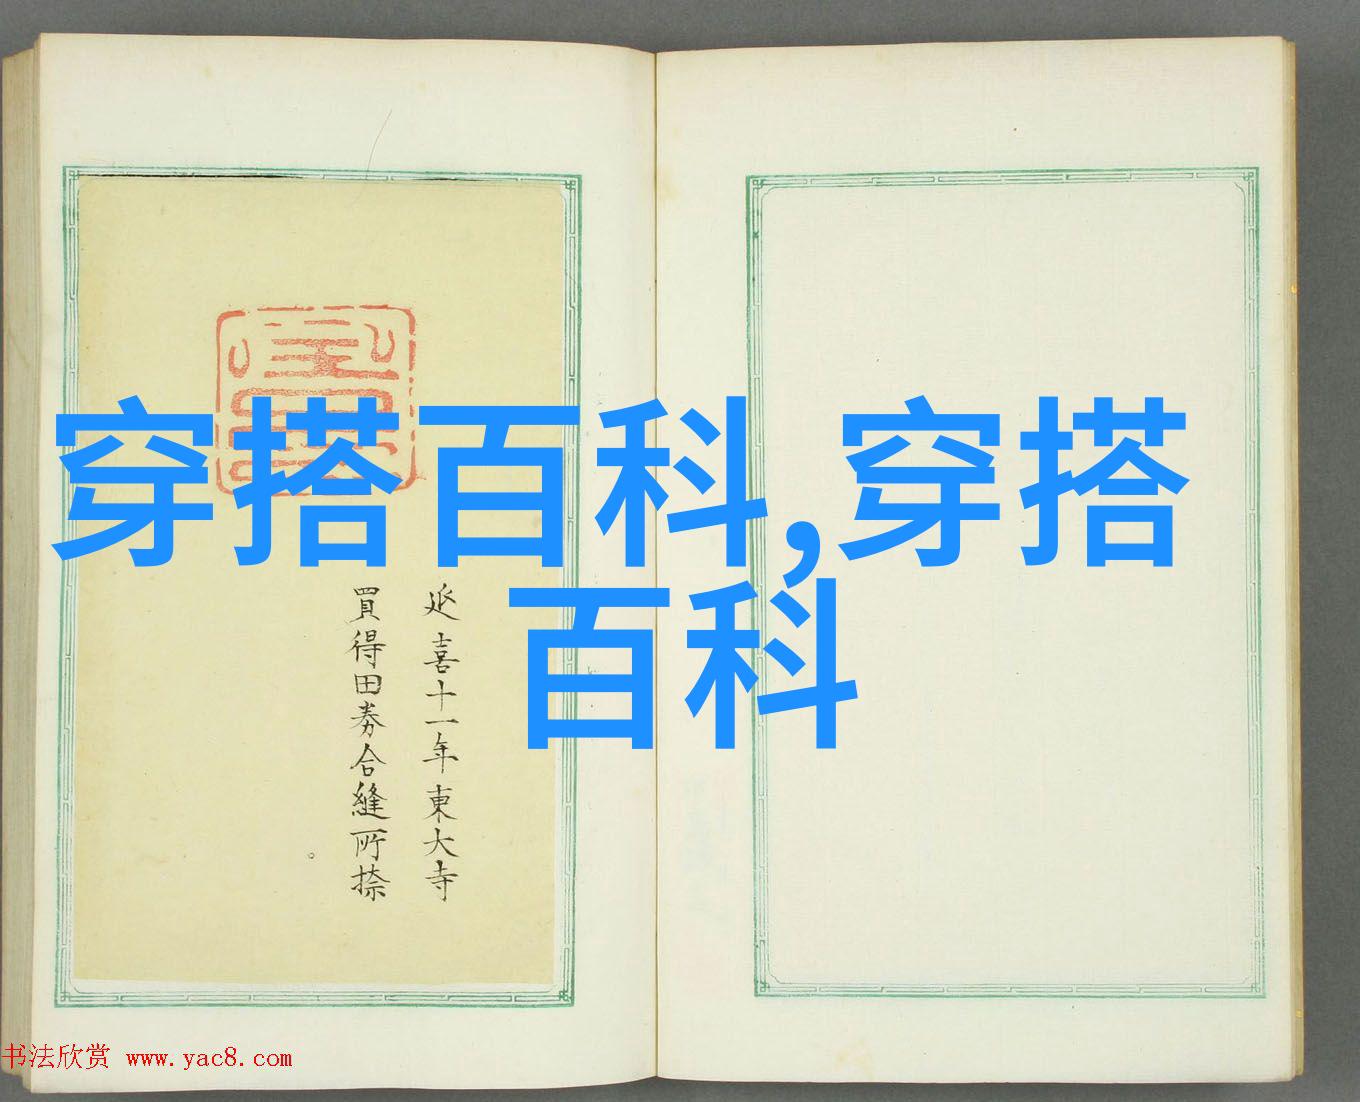 穿搭百科,穿搭
百科
延喜十一年東大寺
買得田券合縫所捺
书法欣赏 www.yac8.com